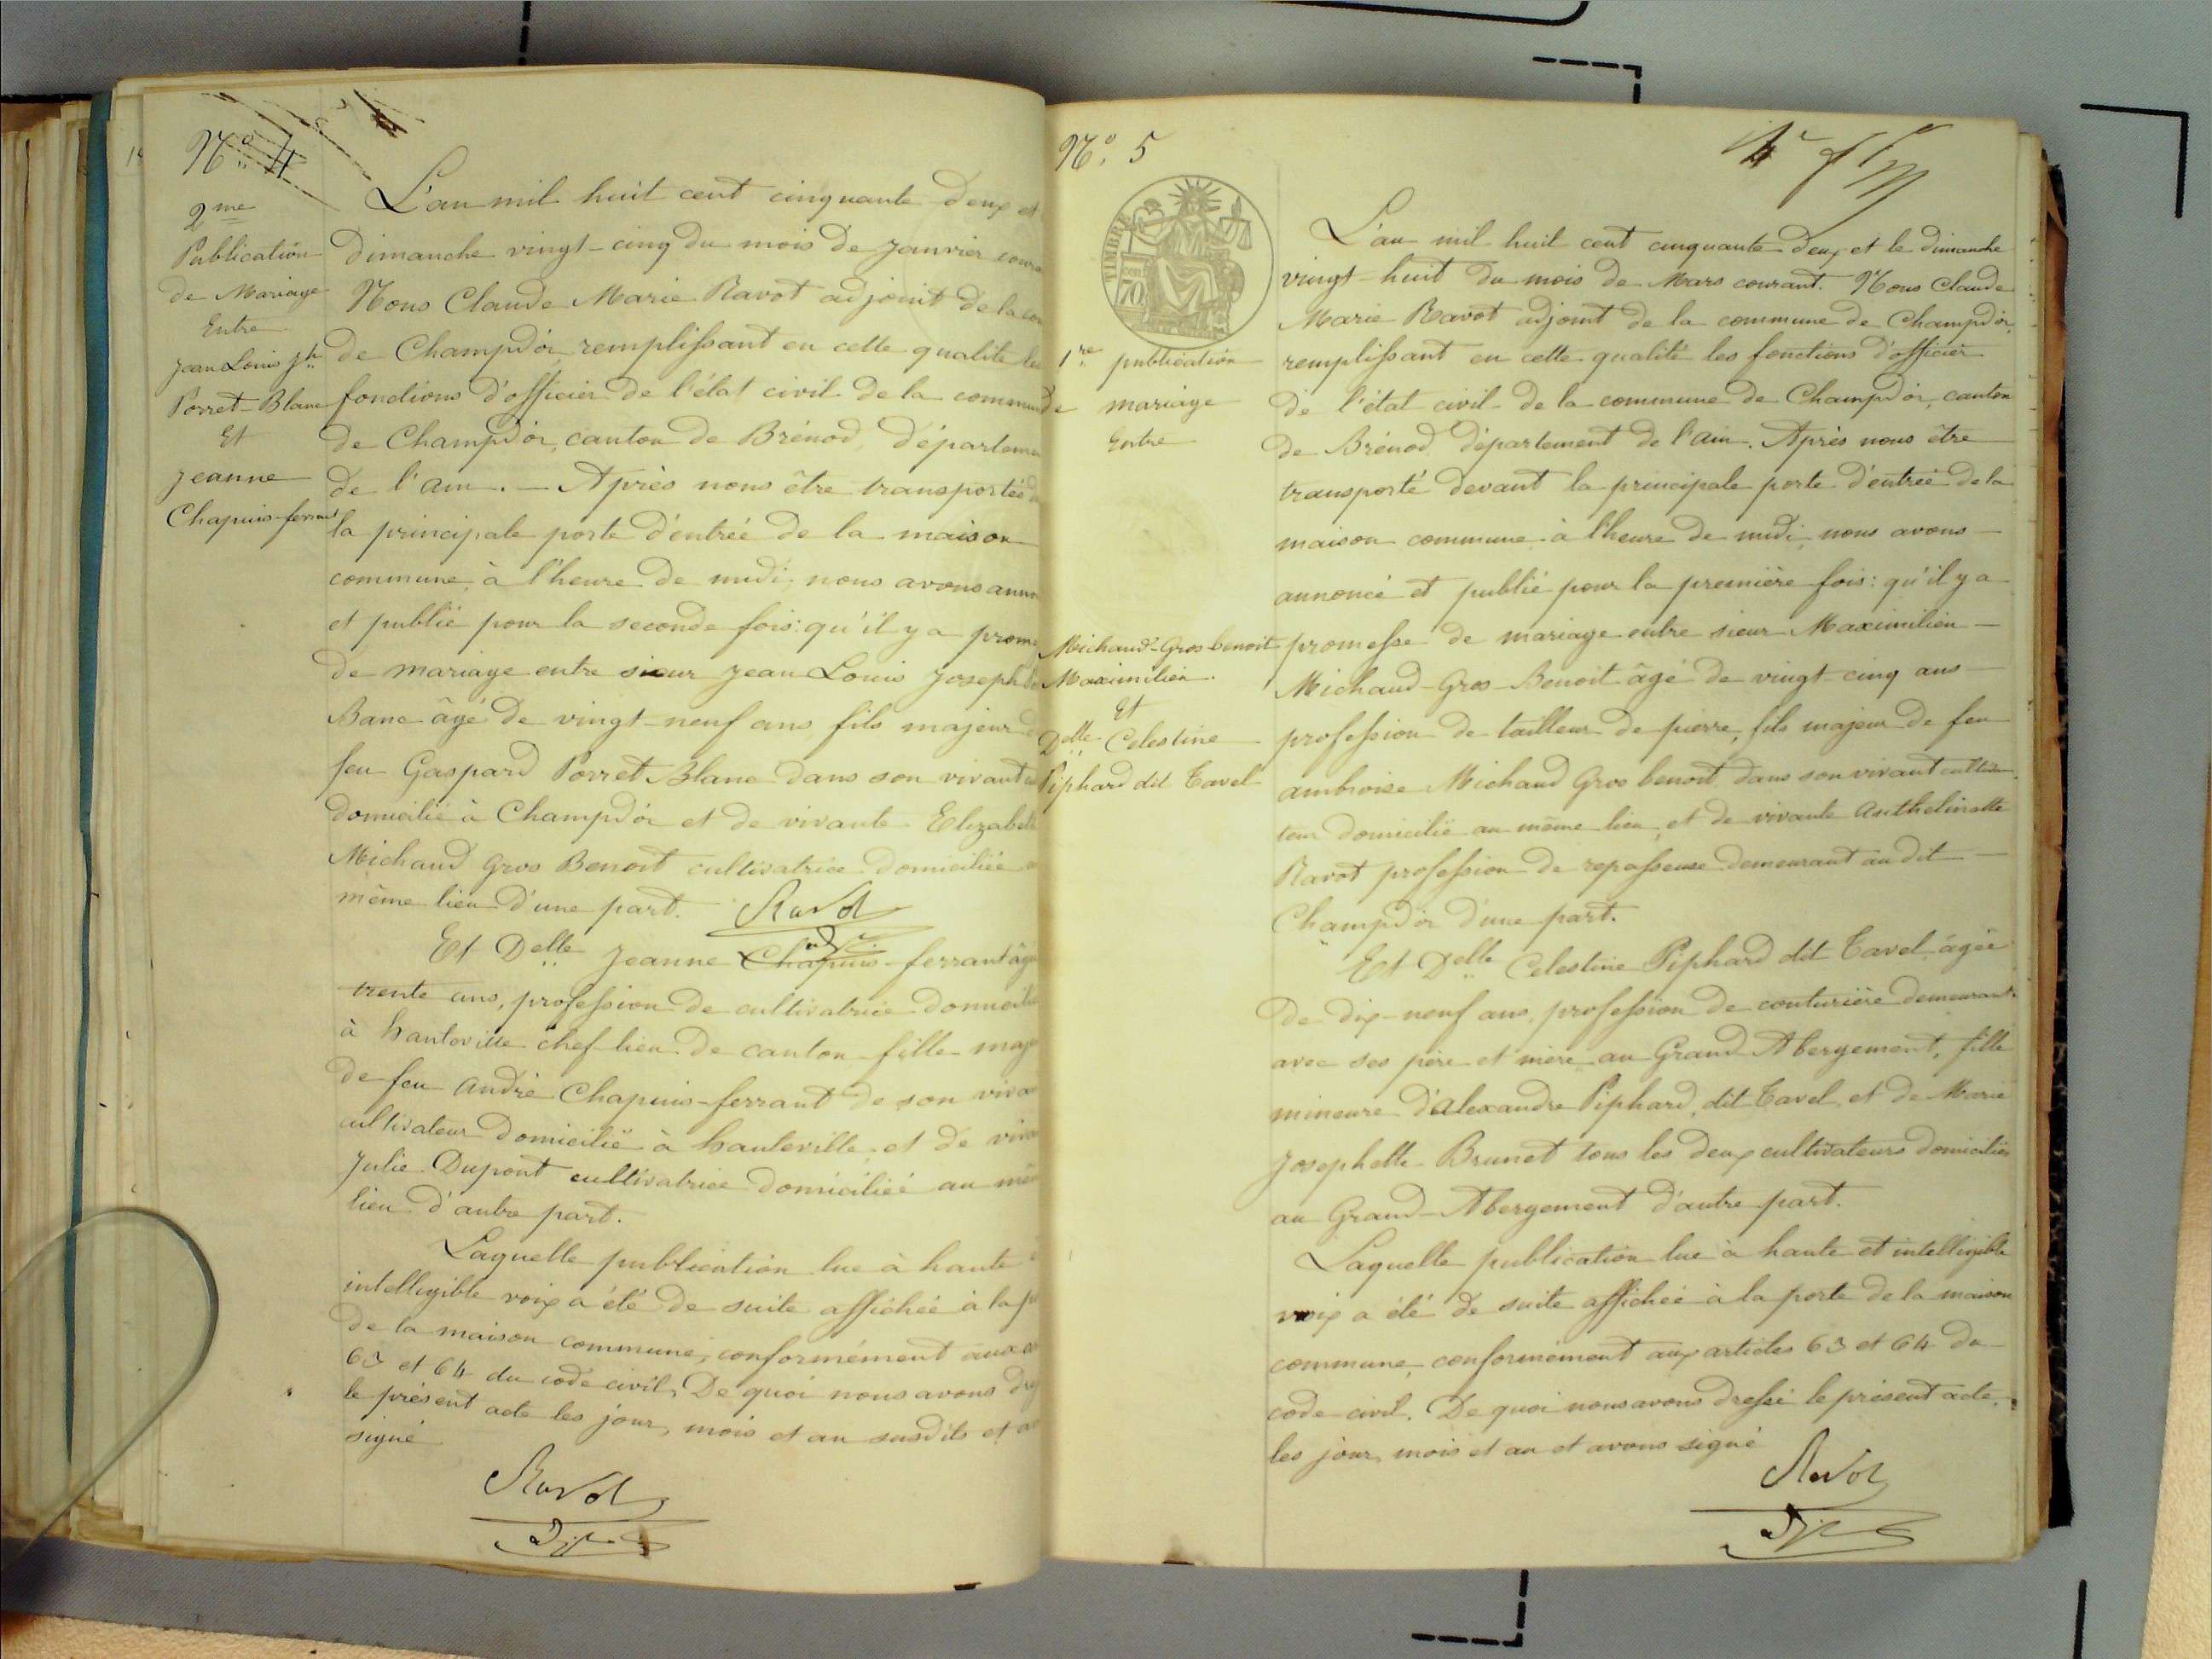 N.º 4
2me
Publication
de Mariage
Entre
Jean Louis Jh
Porret-Blanc
Et
Jeanne
Chapuis-ferrant
L'an mil huit cent cinquante-deux et
dimanche vingt-cinq du mois de Janvier
Nous Claude Marie Ravot adjoint de la
de Champdor remplissant en cette qualité
fonctions d'officier de l'état civil de la
de Champdor, canton de Brénod,
de l'ain. — Après nous être transporté
la principale porte d'entrée de la maison
commune, à l'heure de midi, nous avons
et publié pour la seconde fois: qu'il y a
de mariage entre sieur Jean Louis Joseph
Banc âgé de vingt-neuf ans fils majeur
feu Gaspard Porret Blanc dans son vivant
domicilié à Champdor et de vivante Elizabeth
Michaud Gros Benoit cultivatrice domiciliée
même lieu d'une part. Ravot
Et Delle Jeanne Chapuis-ferrant
trente ans, profession de cultivatrice
à hauteville chef lieu de canton fille
de feu andré Chapuis-ferrant de son
cultivateur domicilié à hauteville et de
Julie Dupont cultivatrice domiciliée au
lieu d'autre part.
Laquelle publication lue à haute
intelligible voix a été de suite affichée à la
de la maison commune, conformément aux
63 et 64 du code civil. De quoi nous avons
le présent acte les jour, mois et an susdits et
signé
Ravot
N.º 5
TIMBRE
70
1re publication
de mariage
Entre
Michaud-Gros-benoit
Maximilien.
Et
Delle Celestine
Piphard dit Tavel
L'an mil huit cent cinquante-deux et le dimanche
vingt-huit du mois de Mars courant. Nous Claude
Marie Ravot adjoint de la commune de Champdor,
remplissant en cette qualité les fonctions d'officier
de l'état civil de la commune de Champdor, canton
de Brénod département de l'ain. Après nous être
transporté devant la principale porte d'entrée de la
maison commune à l'heure de midi, nous avons
annoncé et publié pour la première fois: qu'il y a
promesse de mariage entre sieur Maximilien
Michaud-Gros-Benoit âgé de vingt-cinq ans
profession de tailleur de pierre, fils majeur de feu
ambroise Michaud Gros benoit dans son vivant cultiva
teur domicilié au même lieu, et de vivante Anthelmette
Ravot profession de repasseuse demeurant au dit
Champdor d'une part.
Et Delle Celestine Piphard dit Tavel âgée
de dix-neuf ans, profession de couturière demeurant
avec ses père et mère au Grand Abergement, fille
mineure d'alexandre Piphard, dit Tavel, et de Marie
Josephette Brunet tous les deux cultivateurs domiciliés
au Grand-Abergement d'autre part.
Laquelle publication lue à haute et intelligible
voix a été de suite affichée à la porte de la maison
commune, conformément aux articles 63 et 64 du
code civil. De quoi nous avons dressé le présent acte.
les jour, mois et an et avons signé
Ravot